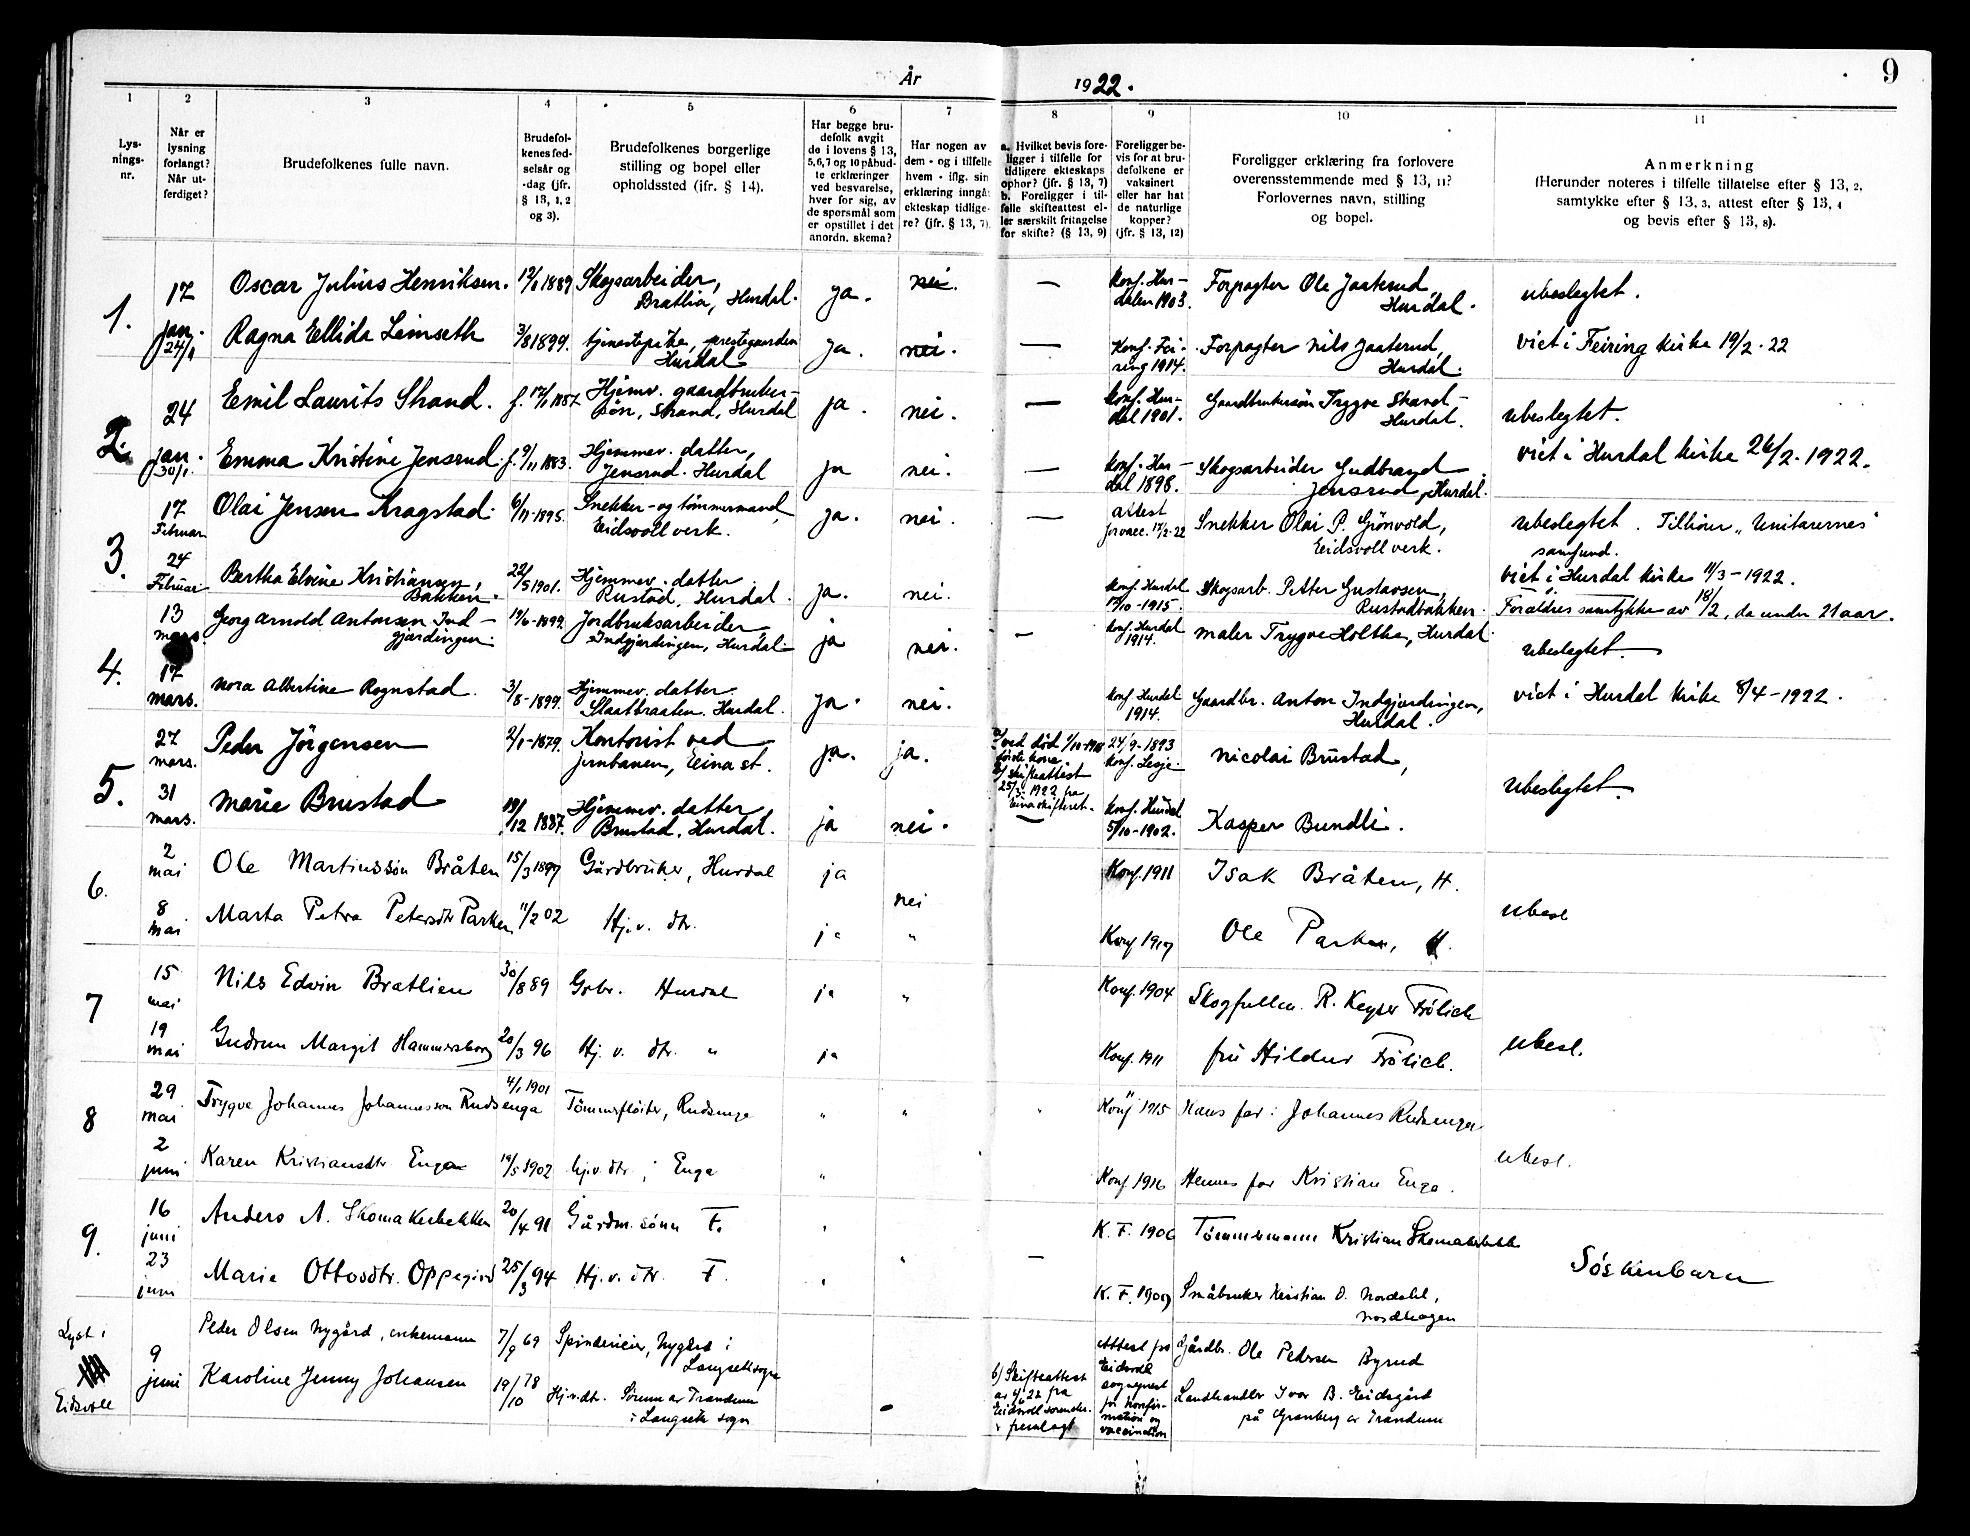 År 1922.
9
1
2
3
4
5
6
7
8
9
10
11
Lys-
nings-
nr.
Når er
lysning
forlangt?
Når ut-
ferdiget?
Brudefolkenes fulle navn.
Brudefol-
kenes fød-
selsår og
-dag (jfr.
§ 13, 1, 2
og 3).
Brudefolkenes borgerlige
stilling og bopel eller
opholdssted (jfr. § 14).
Har begge bru-
defolk avgit
de i lovens § 13,
5, 6, 7 og 10 påbud-
te erklæringer
ved besvarelse,
hver for sig, av
de spørsmål som
er opstillet i det
anordn. skema?
Har nogen av
dem - og i tilfelle
hvem - iflg. sin
erklæring inngåt
ekteskap tidlige-
re? (jfr. § 13, 7).
a. Hvilket bevis fore-
ligger i tilfelle for
tidligere ekteskaps
ophør? (jfr. § 13, 7)
b. Foreligger i til-
felle skifteattest el-
ler særskilt fritagelse
for skifte? (§ 13, 9)
Foreligger be-
vis for at bru-
defolkene er
vaksinert
eller har hat
de naturlige
kopper?
(jfr. § 13, 12)
Foreligger erklæring fra forlovere
overensstemmende med § 13, 11?
Forlovernes navn, stilling
og bopel.
Anmerkning
(Herunder noteres i tilfelle tillatelse efter § 13, 2,
samtykke efter § 13, 3, attest efter § 13, 4
og bevis efter § 13, 8).
1.
17
jan.
24/1
Oscar Julius Henriksen. 12/1 1889 Skogsarbeider,
Bratlia, Hurdal.
ja. nei. — Konf. Hur-
dalen 1903. Forpagter Ole Jaaterud,
Hurdal.
ubeslegtet.
Ragna Ellida Leimseth 3/8 1899. tjenestepike, prestegaarden
Hurdal
ja. nei. — Konf. Fei-
ring 1914. Forpagter Nils Jaaterud,
Hurdal.
viet i Feiring kirke 19/2 - 22
2.
24
jan.
30/1.
Emil Laurits Skand. f. 17/1 1887. Hjemv. gaardbruker-
søn, Skand, Hurdal
ja. nei. — Konf. Hur-
dal 1901. Gaardbrukersøn Trygve Skand -
Hurdal.
ubeslegtet.
Emma Kristine Jensrud. f. 9/11 1883. Hjemmev. datter,
Jensrud. Hurdal
ja nei. — Konf. Hur-
dal 1898. Skogsarbeider Gudbrand
Jensrud, Hurdal.
viet i Hurdal kirke 26/2 - 1922.
3.
17
Februar
24
Februar
Olai Jensen Kragstad. 6/11 - 1895. Snekker - og tømmermand,
Eidsvoll verk.
ja. nei. — attest
for vacc. 17/2-22 Snekker Olai P. Grönvold,
Eidsvoll verk.
ubeslegtet. Tilhører "Unitarernes"
samfund.
Bertha Elvine Kristiansen,
Bakken. 22/5 1901. Hjemmev. datter
Rustad, Hurdal.
ja. nei. Konf. Hurdal
17/10 - 1915. Skogsarb. Petter Gustavsen,
Rustadbakken.
viet i Hurdal kirke 11/3 - 1922.
Forældres samtykke av 18/2, da under 21 aar.
4.
13
mars.
17
mars.
Georg Arnold Antonsen Ind-
gjerdingen. 19/6 - 1899. Jordbruksarbeider
Indgjerdingen, Hurdal
ja nei. — Konf. Hurdal
1914. maler Trygve Holthe, Hurdal.
ubeslegtet.
Nora Albertine Rognstad. 3/8 - 1899. Hjemmev. datter.
Slaatbraaten. Hurdal.
ja. nei. Konf. Hurdal
1914. Gaardbr. Anton Indgjerdingen,
Hurdal.
viet i Hurdal kirke 8/4 - 1922.
5.
27
mars.
31
mars.
Peder Jörgensen 2/1 - 1879. Kontorist ved
jernbanen, Eina st.
ja. ja. a/ ved död 1/10-1918
første kone
b/ skifteattest
25/3-1922 fra
Eina skifteret. 24/9 - 1893
Konf. Lesje. Nicolai Brustad,
ubeslegtet.
Marie Brustad 19/12 1887. Hjemmev. datter
Brustad, Hurdal.
ja nei. — Konf. Hurdal
5/10 - 1902. Kasper Bundli.
6.
2
mai
8
mai
Ole Martinssön Bråten 15/3 1897 Gårdbruker, Hurdal ja nei Konf. 1911 Isak Bråten, H.
ubesl
Marta Petra Petersdtr Parken. 11/2 02 Hj.v. dtr. ja " Konf 1917 Ole Parken, H.
7
15
mai
19
mai
Nils Edvin Bratlien 30/8 89 Gbr. Hurdal ja " Konf. 1904 Skogfullm. R. Keyser Frölich
Gudrun Margit Hammersborg 20/3 96 Hj. v. dtr. " ja Konf. 1911 fru Hildur Frölich.
ubesl.
8
29
mai
2
juni
Trygve Johannes Johannesson Rudsenga 4/1 1901 Tömmerfløiter, Rudsenga " " " Konf 1915 Hans far: Johannes Rudsenga
Karen Kristiansdtr Enga 19/5 1902 hj.v. dtr; Enga " Konf 1916 Hennes far Kristian Enga.
ubesl.
9.
16
juni
23
juni
Anders A. Skomakerbekken 20/4 91 Gårdm. sönn F. " K. F. 1906 Tömmermann Kristian Skomakerbekk
Marie Ottosdtr. Oppegård 25/3 94 Hj.v. dtr. F. " " — K. F. 1909 Småbruker Kristian O. Nordahl,
Nordhagen
Söskenbarn
Lyst i
Eidsvoll
9
juni
Peder Olsen Nygård, enkemann 7/9 69 Spinderieier, Nygård i
Langset sogn
b) Skifteattest
av 4/ 22 fra
Eidsvoll sorenskr.
fremlagt
Attest fra
Eidsvoll
sogneprest
for konfir-
mation og
vaccination
Gårdbr. Ole Pedersen Byrud
Karoline Jenny Johansen 19/10 78 Hj.v.dt. Sörum av Trandum
i Langset sogn
Landhandler Ivar B. Eidsgård
på Granberg av Trandum